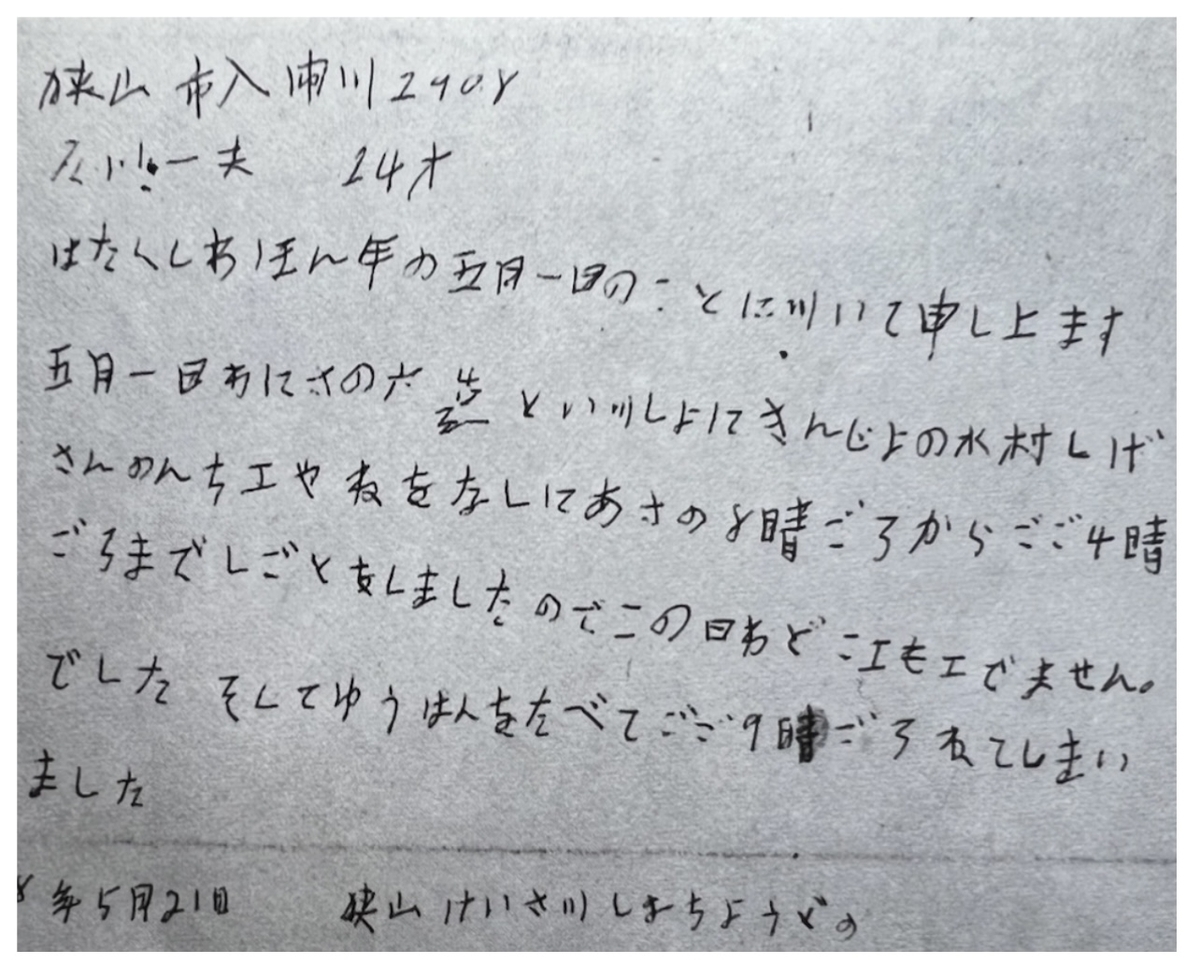 狭山市入間川2908
石川一夫 24才
はたくしわほん年の五月一日のことに川いて申し上ます
五月一日わにさの六造といツしよにきんじよの水村しげ
さんのんちエやねをなしにあさの8時ごろからごご4時
ごろまでしごとをしましたのでこの日わどこエもエでません。
でした そしてゆうはんをたべてごご9時ごろねてしまい
ました
年5月21日 狭山けいさツしよちようどの